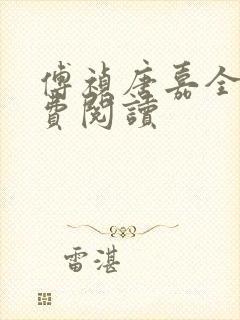 傅禎唐嘉全
費閱讀
雷湛